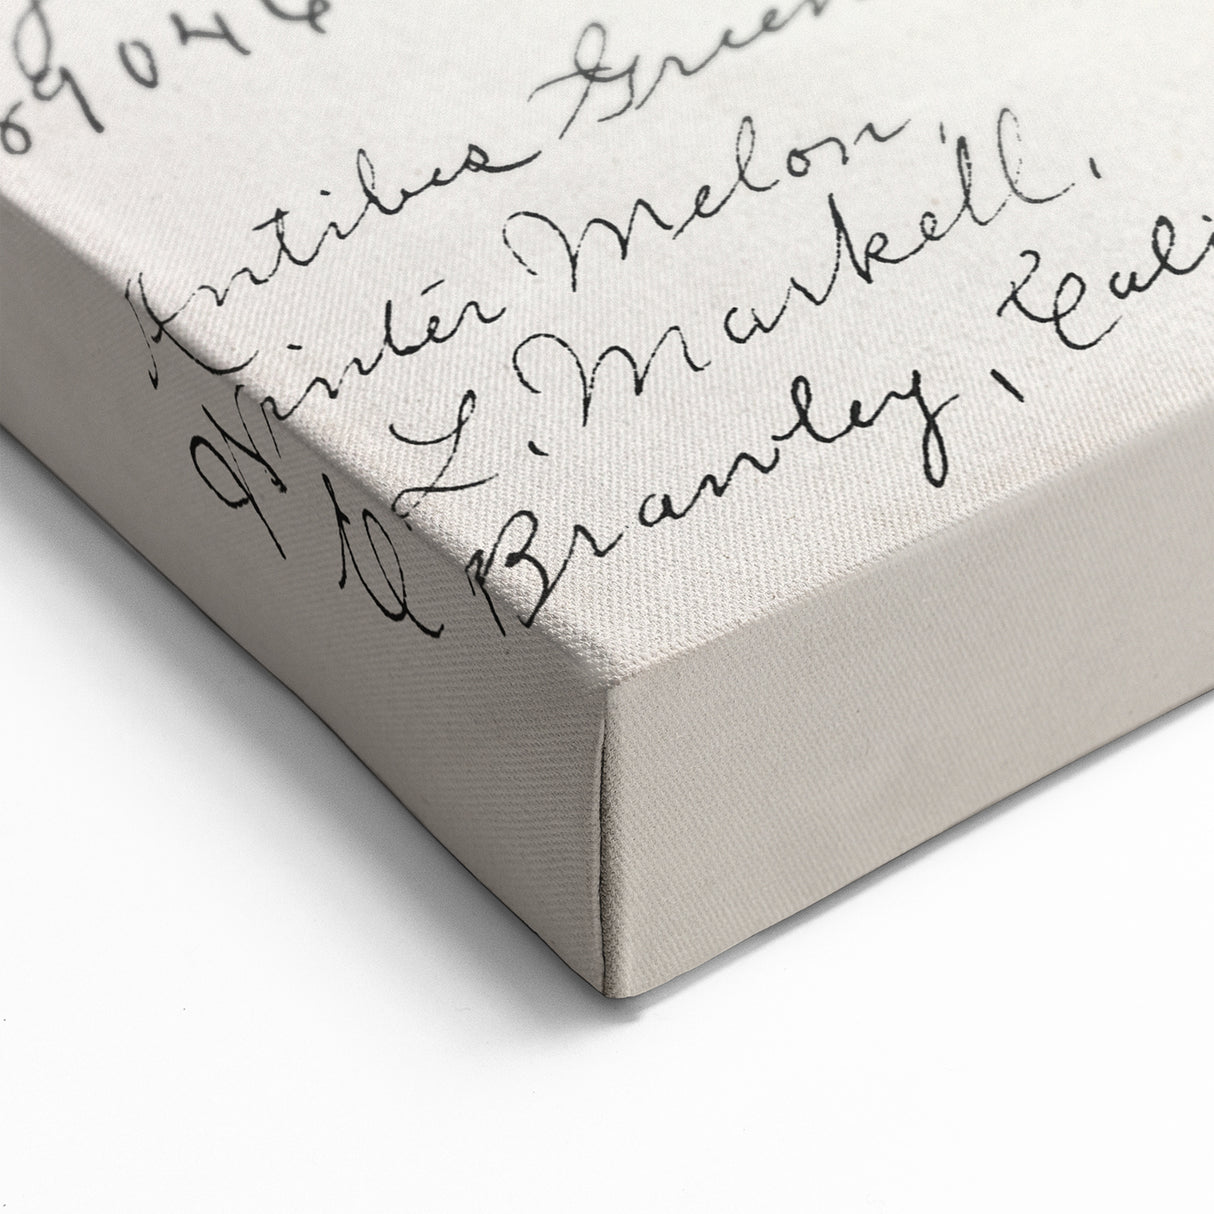 6904
Antibes Green
Winter Melon,
L. Markell,
Brawley, Cali